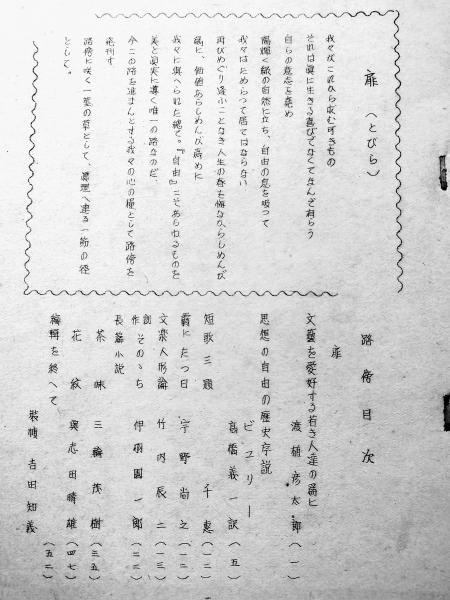 扉(とびら)
我々がこれから求む可きもの
それは真に生きる喜びでなくてなんぞ有らう
自らの意志を葉め
陽輝く緑の自然に立ち、自由の息を吸つて
我々はためらつて居てはならない
再びめぐり逢ふことなき人生の春を悔なからしめんが
為に、価値あらしめんが為めに
我々に與へられた総て。『自由』こそあらゆるものを
美と真実に導く唯一の路なのだ。
今この路を進まんとする我々の心の糧として路傍を
発刊す
路傍に咲く一茎の草として、真理へ連る一筋の径
として。
路傍目次
扉
文藝を愛好する若き人達の為に
渡植彦太郎(一)
思想の自由の歴史序説
ビユリー
高橋義一訳(五)
短歌三題 千恵(一二)
霧にたつ日 宇野尚之(一二)
文楽人形論 竹内辰二(一三)
創作 そのゝち 伊羽園一郎(二二)
長篇小説
茶味 三輪茂樹(三五)
花紋 與志田晴雄(四七)
編輯を終へて(五二)
装幀 吉田知義